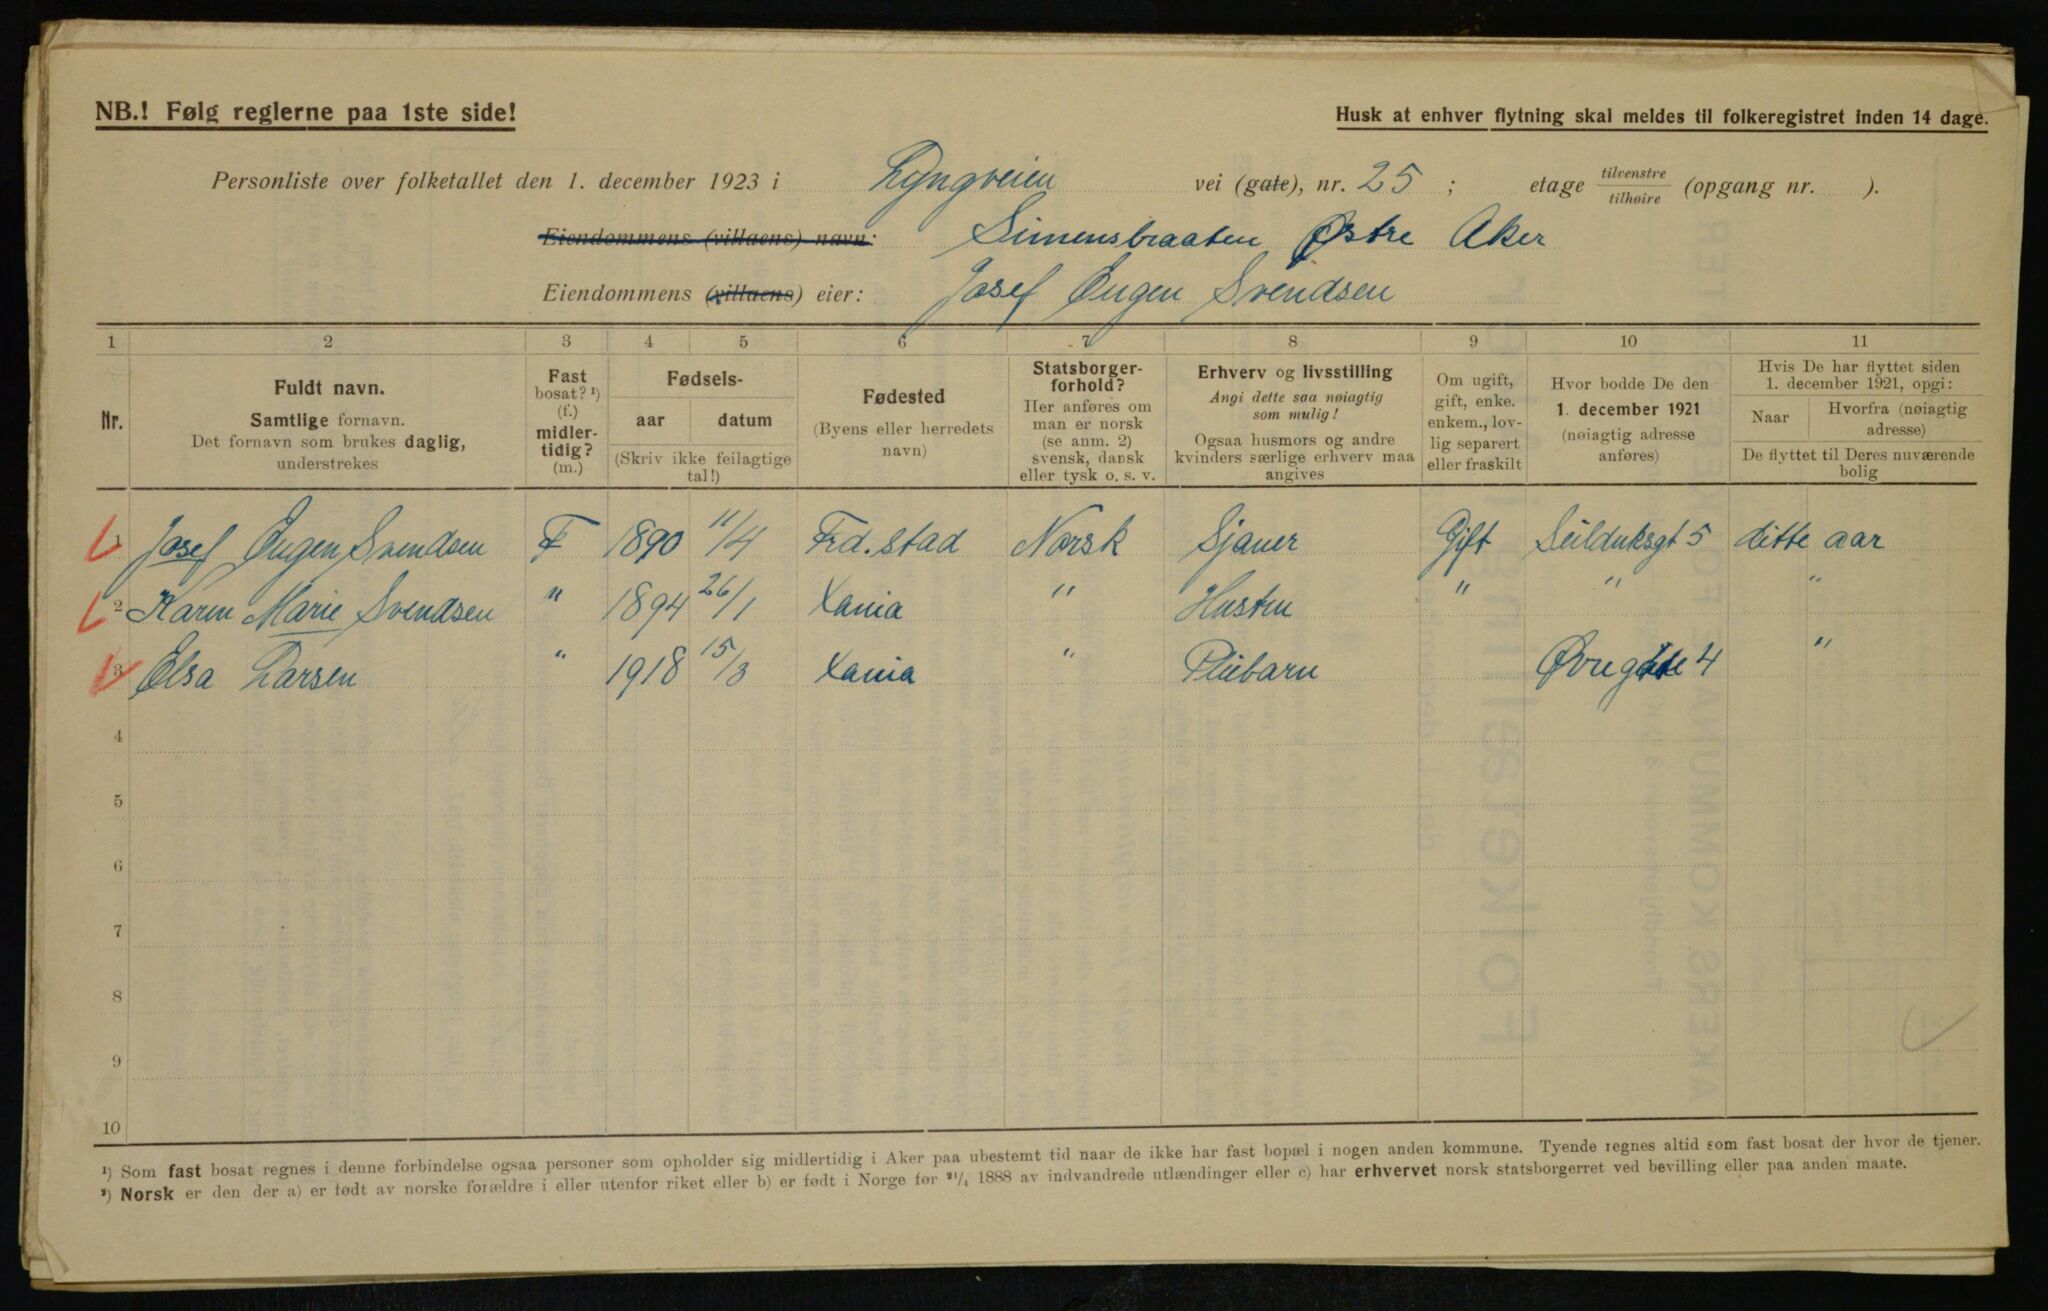 NB.! Følg reglerne paa 1ste side!
Husk at enhver flytning skal meldes til folkeregistret inden 14 dage.
Personliste over folketallet den 1. december 1923 i Lyngveien vei (gate), nr. 25 ; etage tilvenstre tilhøire (opgang nr. ).
Eiendommens (villaens) navn: Simensbraaten Østre Aker
Eiendommens (villaens) eier: Josef Eugen Svendsen
1 2 3 4 5 6 7 8 9 10 11
Nr.
Fuldt navn.
Samtlige fornavn.
Det fornavn som brukes daglig,
understrekes
Fast
bosat? ¹)
(f.)
midler-
tidig?
(m.)
Fødsels-
aar datum
(Skriv ikke feilagtige
tal!)
Fødested
(Byens eller herredets
navn)
Statsborger-
forhold?
Her anføres om
man er norsk
(se anm. 2)
svensk, dansk
eller tysk o. s. v.
Erhverv og livsstilling
Angi dette saa nøiagtig
som mulig!
Ogsaa husmors og andre
kvinders særlige erhverv maa
angives
Om ugift,
gift, enke.
enkem., lov-
lig separert
eller fraskilt
Hvor bodde De den
1. december 1921
(nøiagtig adresse
anføres)
Hvis De har flyttet siden
1. december 1921, opgi:
Naar Hvorfra (nøiagtig
adresse)
De flyttet til Deres nuværende
bolig
1 Josef Eugen Svendsen F 1890 11/4 Frd.stad Norsk Sjauer Gift Seilduksgt 5 ditte aar
2 Karen Marie Svendsen " 1894 26/1 Xania " Hustru " " "
3 Elsa Larsen " 1918 15/3 Xania " Pleiebarn Øvregate 4 "
4
5
6
7
8
9
10
¹) Som fast bosat regnes i denne forbindelse ogsaa personer som opholder sig midlertidig i Aker paa ubestemt tid naar de ikke har fast bopæl i nogen anden kommune. Tyende regnes altid som fast bosat der hvor de tjener.
²) Norsk er den der a) er født av norske forældre i eller utenfor riket eller b) er født i Norge før ²¹/₄ 1888 av indvandrede utlændinger eller c) har erhvervet norsk statsborgerret ved bevilling eller paa anden maate.